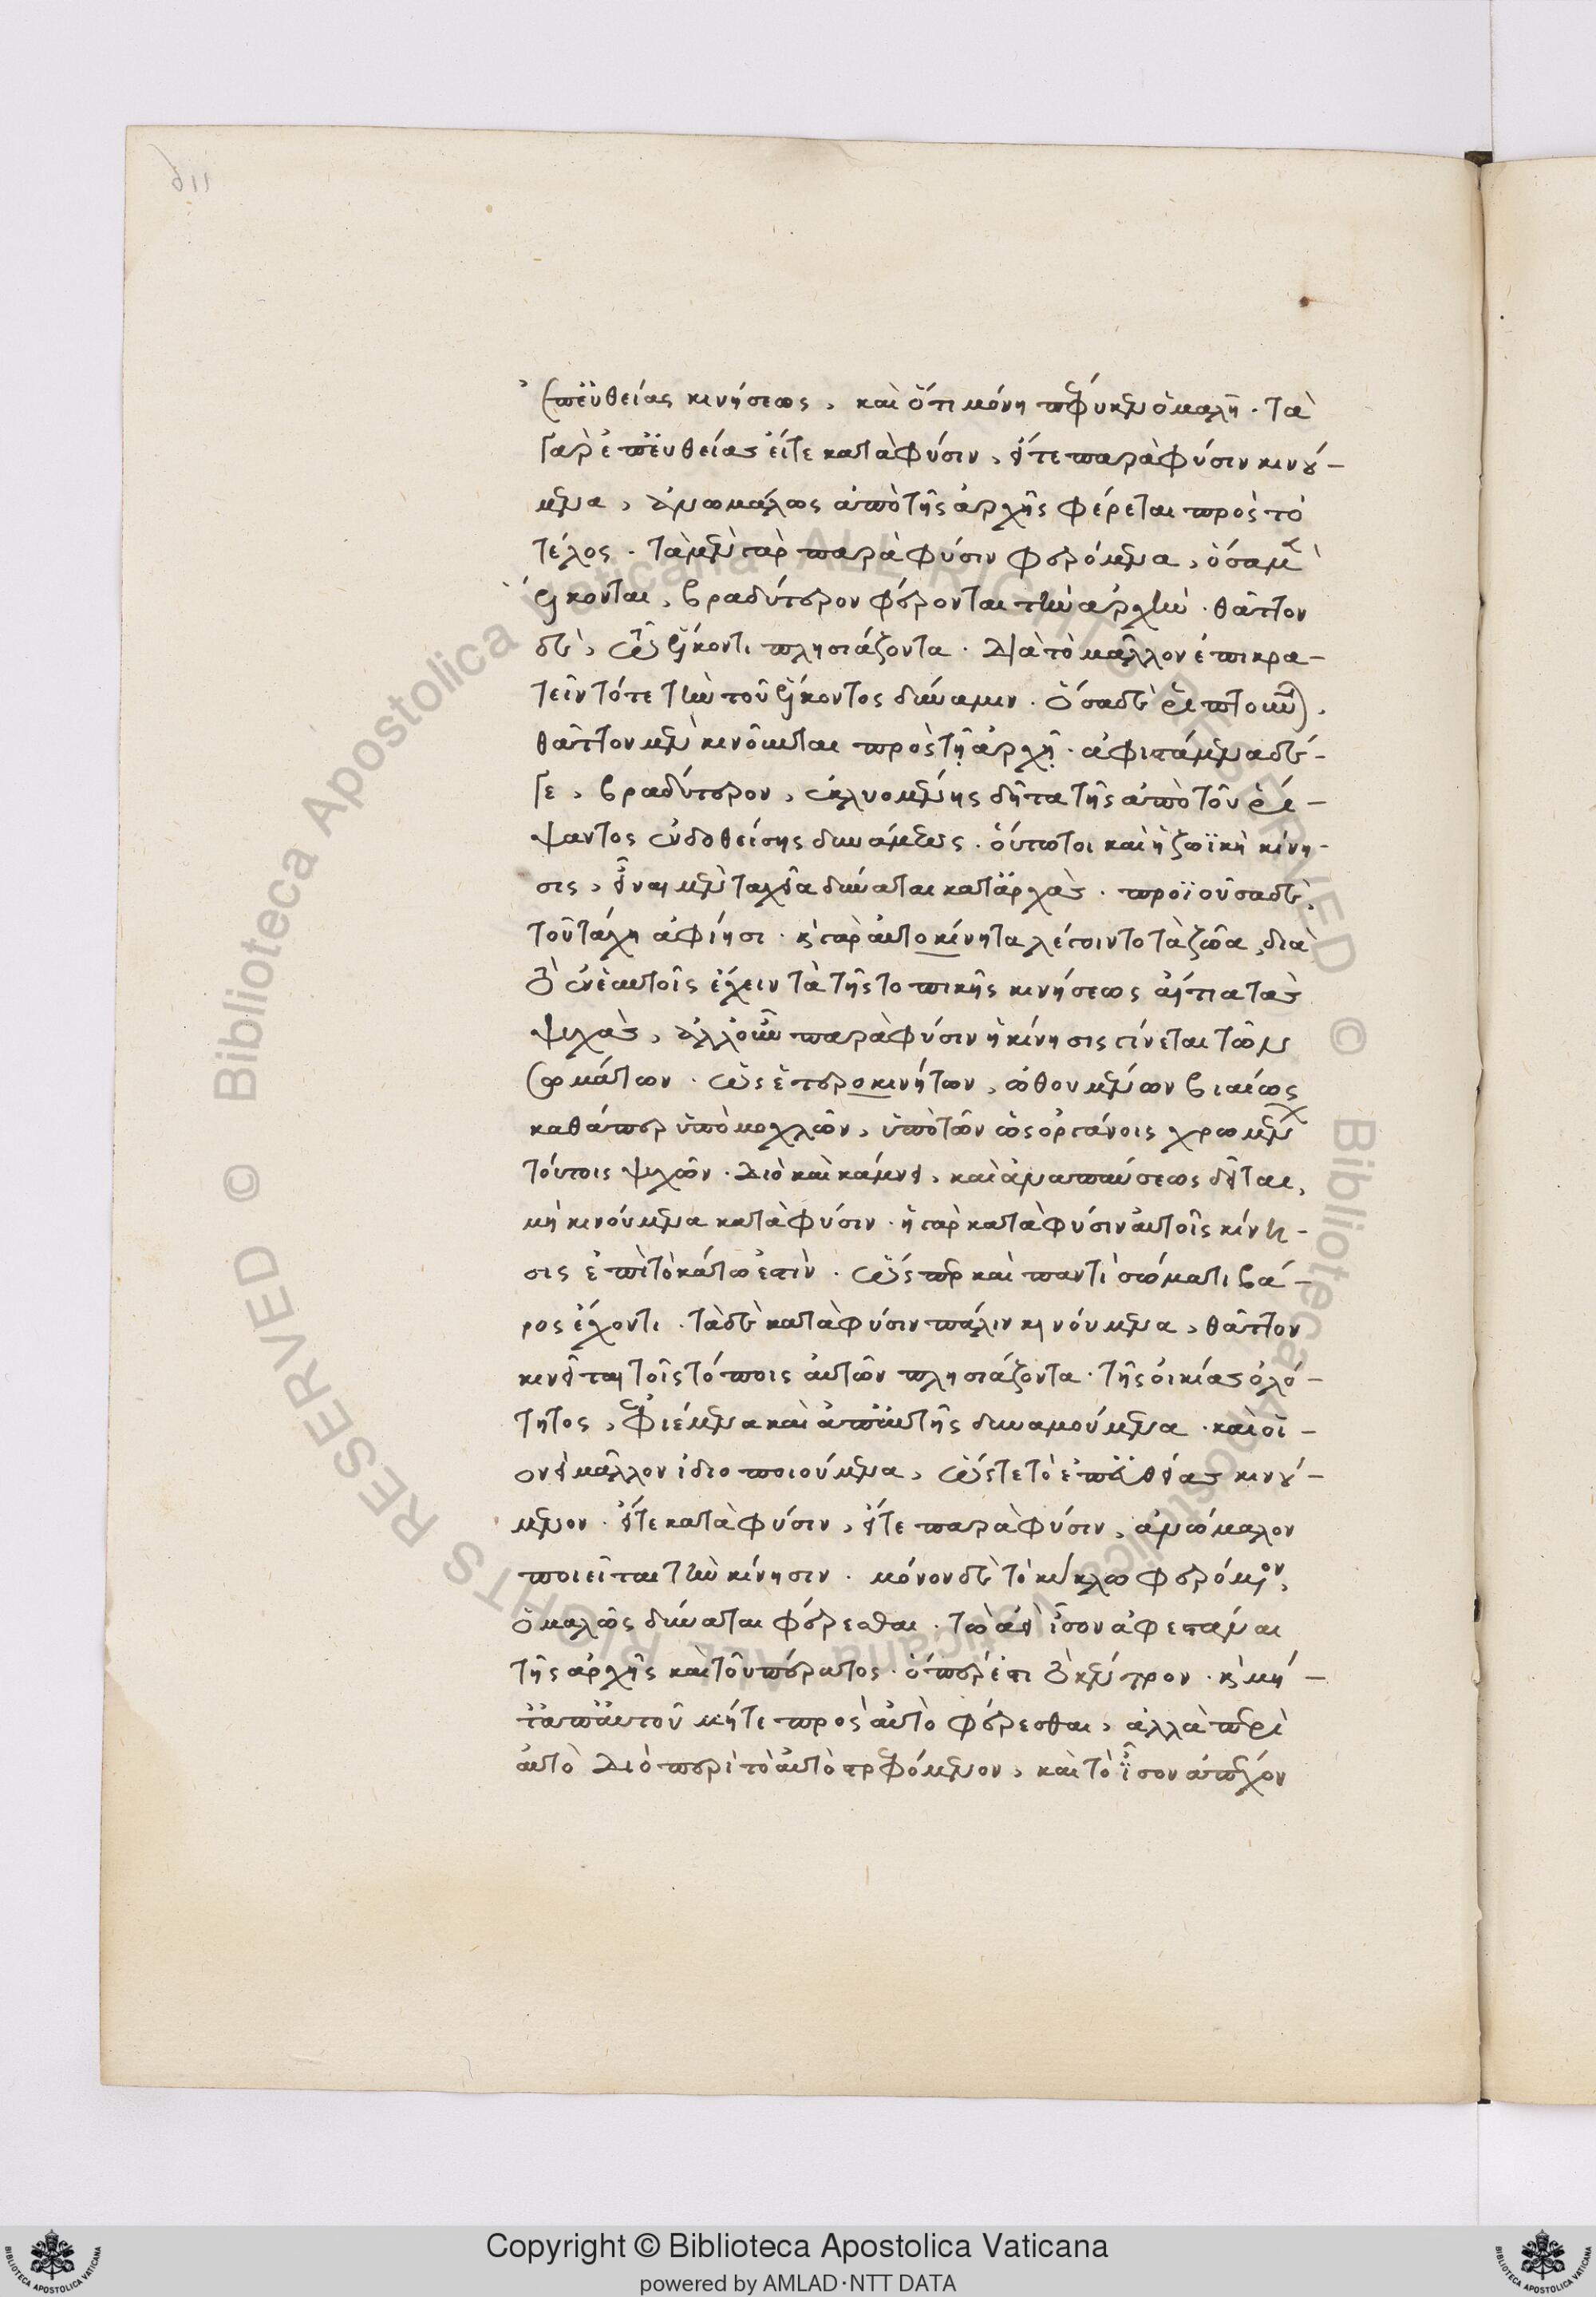 ἐπ' εὐθείας κινήσεως, καὶ ὅτι μόνη πέφυκεν ὁμαλή. τὰ
γὰρ ἐπ' εὐθείας εἴτε κατὰ φύσιν, εἴτε παρὰ φύσιν κινού-
μενα, ἀνωμάλως ἀπὸ τῆς ἀρχῆς φέρεται πρὸς τὸ
τέλος. τὰ μὲν γὰρ παρὰ φύσιν φερόμενα, ὅσα μὲν
ἕλκονται, βραδύτερον φέρονται τὴν ἀρχήν. θᾶττον
δὲ, τῷ ἕλκοντι πλησιάζοντα. διὰ τὸ μᾶλλον ἐπικρα-
τεῖν τότε τὴν τοῦ ἕλκοντος δύναμιν. ὅσα δὲ ῥιπτοῦν),
θᾶττον μὲν κινοῦνται πρὸς τῇ ἀρχῇ. ἀφιστάμενα δέ-
γε, βραδύτερον, ἐκλυομένης δῆτα τῆς ἀπὸ τοῦ ῥί-
ψαντος ἐνδοθείσης δυνάμεως. οὕτω τοι καὶ ἡ ζωϊκὴ κίνη-
σις, εἶναι μὲν ταχεῖα δύναται κατ' ἀρχὰς. προϊοῦσα δὲ,
τοῦ τάχους ἀφίησι. κἂν γὰρ αὐτοκίνητα λέγοιντο τὰ ζῶα, διὰ
τὸ ἐν ἑαυτοῖς ἔχειν τὰ τῆς τοπικῆς κινήσεως αἴτια τὰς
ψυχὰς, ἀλλ' οὖν παρὰ φύσιν ἡ κίνησις γίνεται τῶν
σωμάτων. ὡς ἑτεροκινήτων, ὠθουμένων βιαίως
καθάπερ ὑπὸ μοχλῶν, ὑπὸ τῶν ὡς ὀργάνοις χρωμένων
τούτοις ψυχῶν. διὸ καὶ κάμνει, καὶ ἀναπαύσεως δεῖται,
μὴ κινούμενα κατὰ φύσιν. ἡ γὰρ κατὰ φύσιν αὐτοῖς κίνη-
σις ἐπὶ τὸ κάτω ἐστὶν. ὥσπερ καὶ παντὶ σώματι βά-
ρος ἔχοντι. τὰ δὲ κατὰ φύσιν πάλιν κινούμενα, θᾶττον
κινεῖται τοῖς τόποις αὐτῶν πλησιάζοντα. τῆς οἰκίας ὁλό-
τητος, ἐφιέμενα καὶ ἀπ' αὐτῆς δυναμούμενα. καὶ οἱ-
ονεὶ μᾶλλον ἰδιοποιούμενα, ὥστε τὸ ἐπ' εὐθείας κινού-
μενον. εἴτε κατὰ φύσιν, εἴτε παρὰ φύσιν, ἀνώμαλον
ποιεῖται τὴν κίνησιν. μόνον δὲ τὸ κύκλῳ φερόμενον,
ὁμαλῶς δύναται φέρεσθαι. τῷ ἀεὶ ἴσον ἀφεστάναι
τῆς ἀρχῆς καὶ τοῦ πέρατος. ὅπερ ἐστὶ τὸ κέντρον. καὶ μή-
τ' ἀπ' αὐτοῦ μήτε πρὸς αὐτὸ φέρεσθαι, ἀλλὰ περὶ
αὐτὸ διὸ περὶ τὸ αὐτὸ στρεφόμενον, καὶ τὸ ἴσον ἀπέχον
Copyright © Biblioteca Apostolica Vaticana
powered by AMLAD·NTT DATA